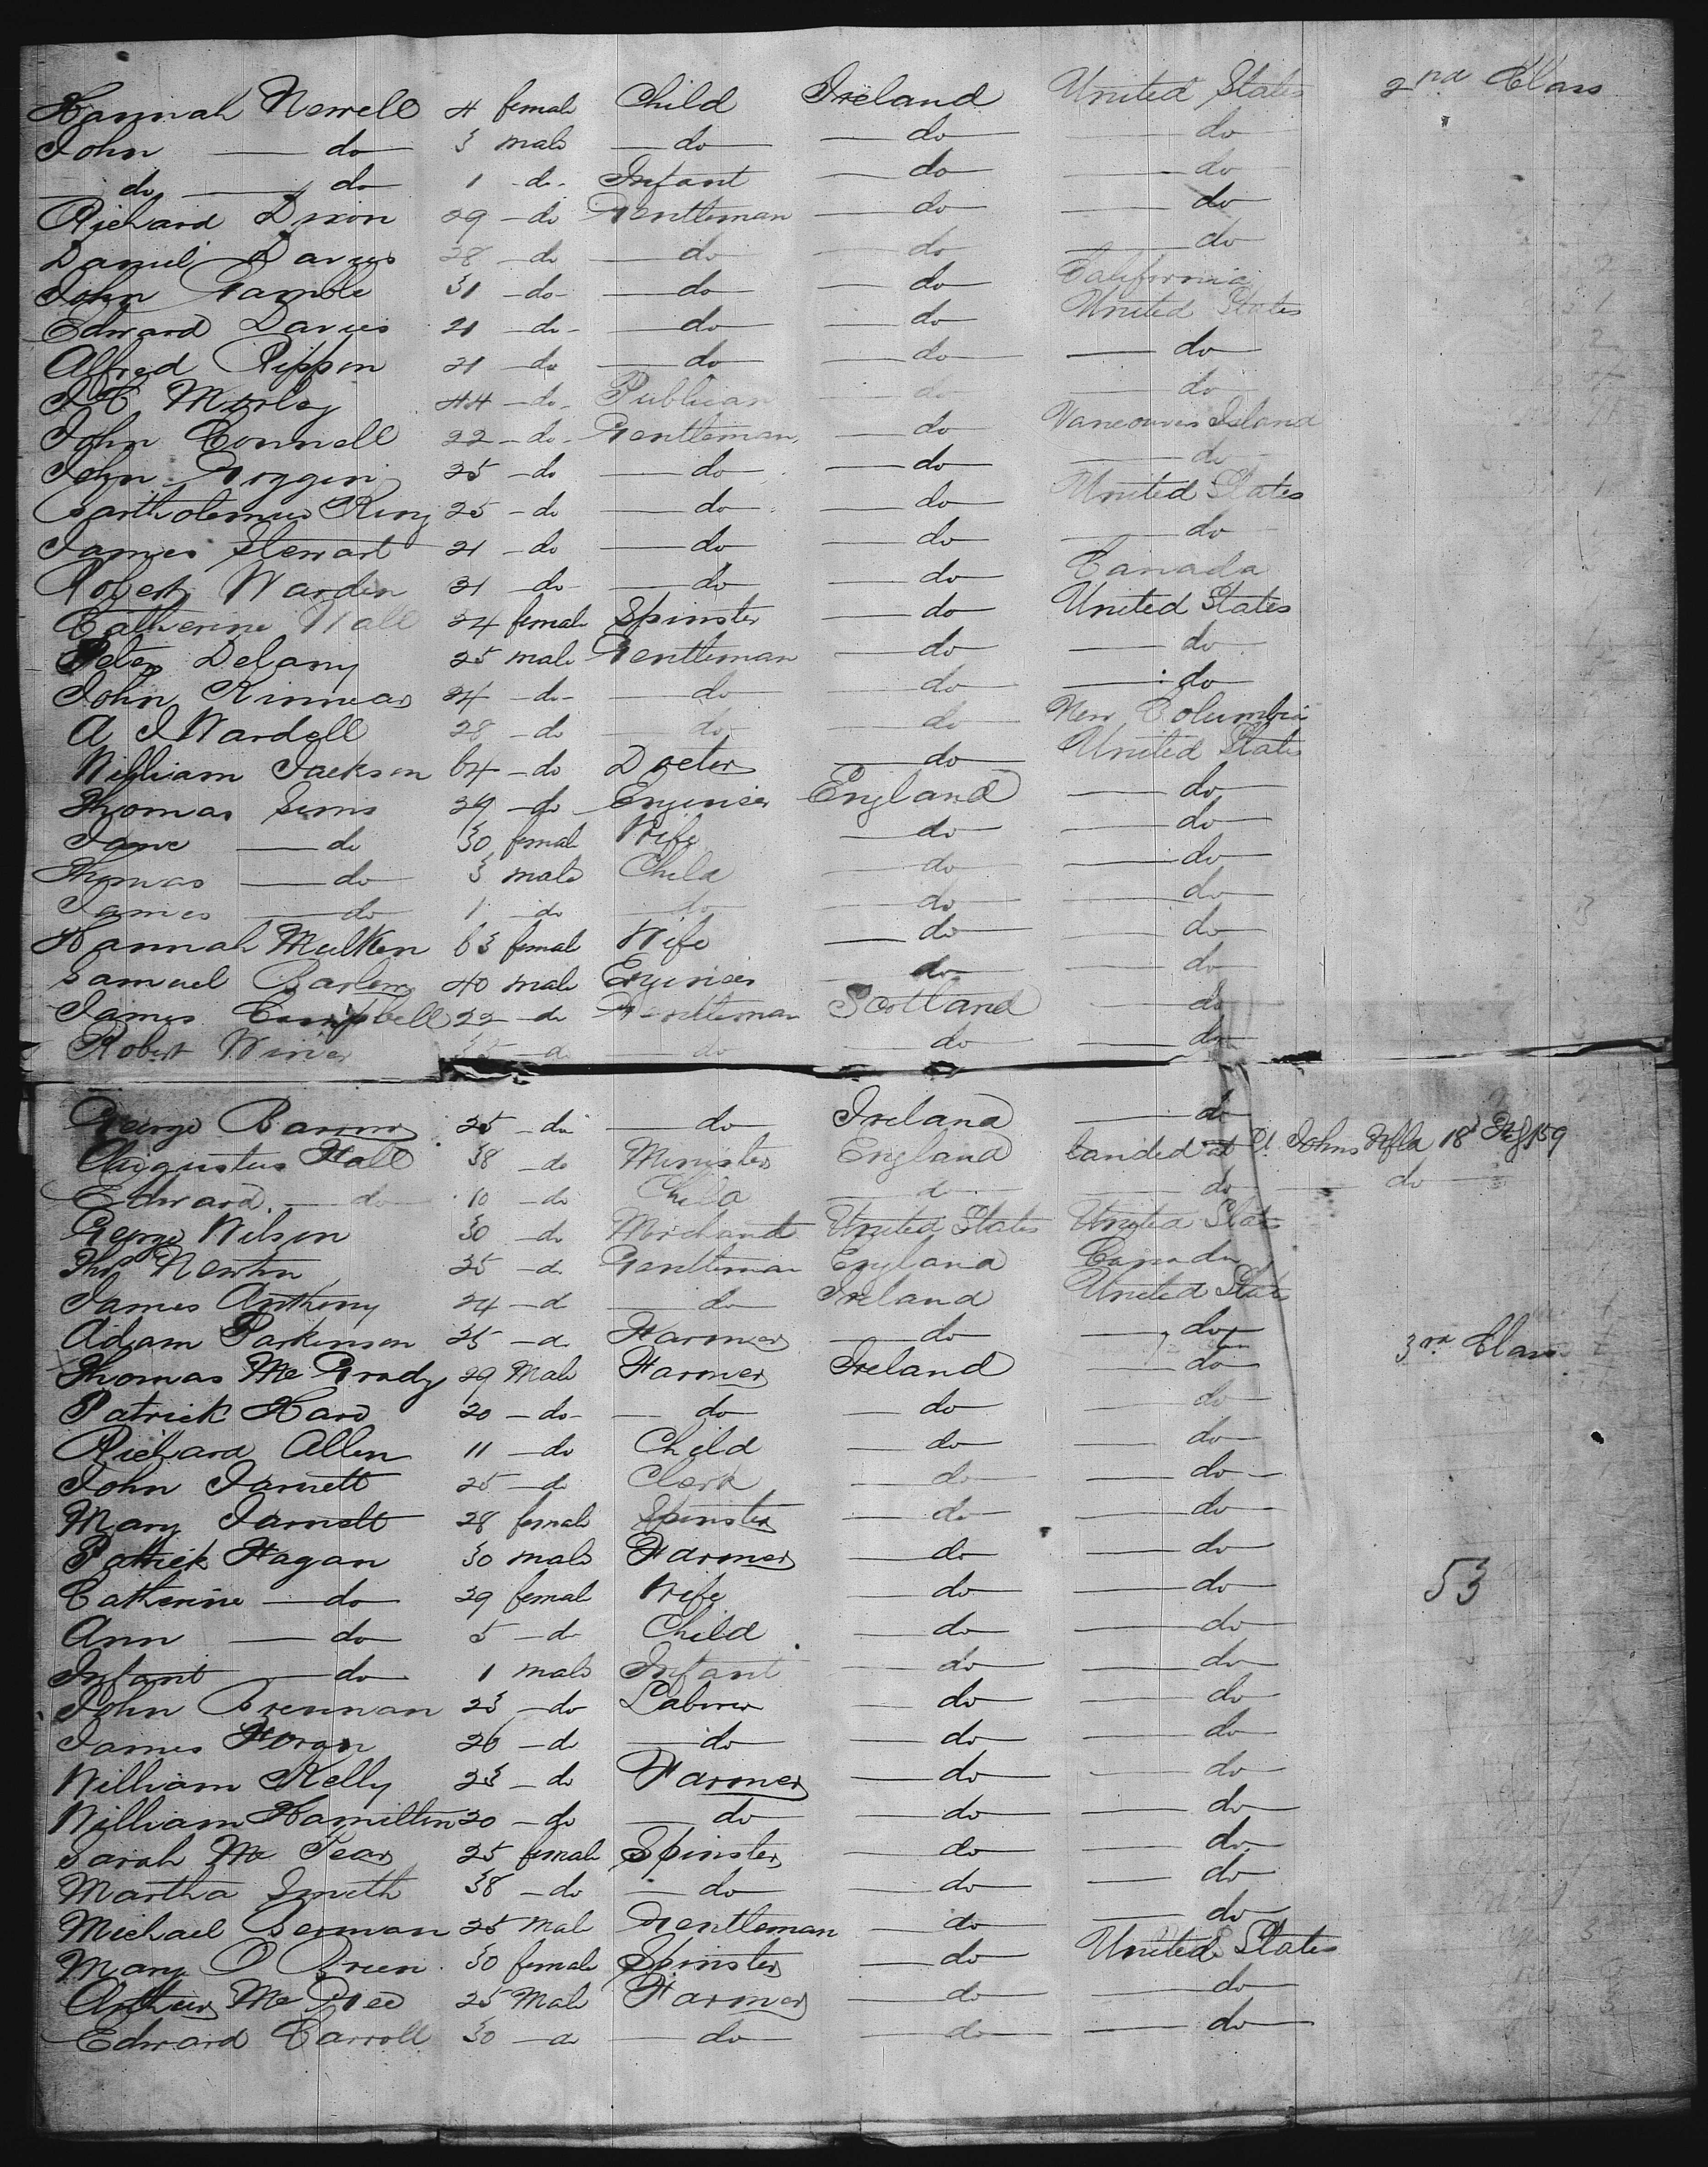 Hannah Newell 4 female Child Ireland United States 2nd Class
John do 3 male do do do
do do 1 do Infant do do
Richard Dixon 29 do Gentleman do do
Daniel Davies 28 do do do do
John Gamble 31 do do do California
Edward Davies 21 do do do United States
Alfred Rippon 21 do do do do
J C Morley 44 do Publican do do
John Connell 22 do Gentleman do Vancouver Island
John Goggin 25 do do do do
Bartholemew King 25 do do do United States
James Stewart 21 do do do do
Robert Warden 21 do do do Canada
Catherine Wall 24 female Spinster do United States
Peter Delany 25 male Gentleman do do
John Kinnear 24 do do do do
A J Wardell 28 do do do New Columbia
William Jackson 64 do Docter do United States
Thomas Sims 29 do Engineer England do
Jane do 30 female Wife do do
Thomas do 3 male Child do do
James do 1 do do do do
Hannah Mulken 63 female Wife do do
Samuel 40 male Engineer do do
James Campbell 22 do Gentleman Scotland do
Robert do do do do
George 25 do do Ireland do
Augustus Hall 38 do Minister England Landed at St Johns Nfld 18
Edward do 10 do Child do do do
George Wilson 30 do Merchant United States United States
Thos Newton 35 do Gentleman England Canada
James Anthony 24 do do Ireland United States
Adam Parkinson 25 do Farmer do do 3rd Class
Thomas Mc Grady 29 Male Farmer Ireland do
Patrick Hand 20 do do do do
Richard Allen 11 do Child do do
John Jarnett 25 do Clerk do do
Mary Jarnett 28 female Spinster do do
Patrick Hagan 30 male Farmer do do
Catherine do 29 female Wife do do 53
Ann do 5 do Child do do
Infant do 1 male Infant do do
John Brennan 23 do Laborer do do
James Horan 26 do do do do
William Kelly 23 do Farmer do do
William Hamilton 20 do do do do
Sarah Mc Tear 25 female Spinster do do
Martha Smith 38 do do do do
Michael 25 Male Gentleman do do
Mary O Brien 30 female Spinster do United States
Arthur Mc 25 Male Farmer do do
Edward Carroll 30 do do do do